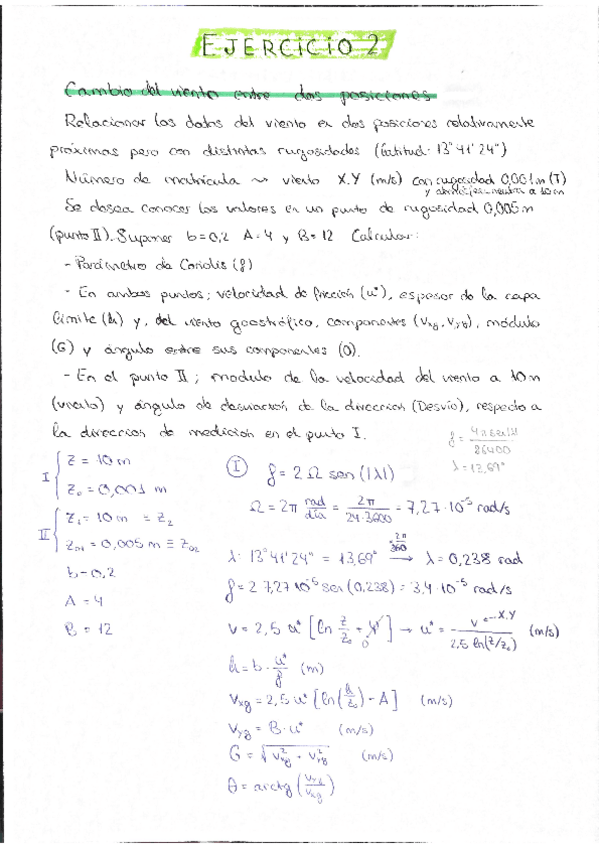 EJERCICIO 2
Cambio del viento entre dos posiciones
Relacionar los datos del viento en dos posiciones relativamente
próximas pero con distintas rugosidades (latitud: 13°41'24")
Número de matrícula ~> viento X.Y (m/s) con rugosidad 0,001m (I)
y neutra a 10m
Se desea conocer los valores en un punto de rugosidad 0,005m
(punto II). Suponer b=0,2 A=4 y B=12 Calcular:
- Parámetro de Coriolis (f)
- En ambos puntos; velocidad de fricción (u*), espesor de la capa
límite (h) y, del viento geostrófico, componentes (Vxg, Vyg), módulo
(G) y ángulo entre sus componentes (θ).
- En el punto II; modulo de la velocidad del viento a 10m
(viento) y ángulo de desviación de la dirección (Desvío), respecto a
la dirección de medición en el punto I.
f = 4π sen|λ| / 86400
λ = 13,69°
I { z = 10 m
z₀ = 0,001 m
II { z₁ = 10 m = z₂
z₀₁ = 0,005 m ≡ z₀₂
b = 0,2
A = 4
B = 12
I f = 2 Ω sen (|λ|)
Ω = 2π rad/día = 2π / 24·3600 = 7,27·10⁻⁵ rad/s
λ: 13°41'24" = 13,69° ×2π/360 → λ = 0,238 rad
f = 2·7,27·10⁻⁵ sen (0,238) = 3,4·10⁻⁵ rad/s
v = 2,5 u* [ln z/z₀ + Ψ] → u* = v / 2,5 ln(z/z₀) (m/s)
0
X.Y
h = b · u*/f (m)
Vxg = 2,5 u* [ln(h/z₀) - A] (m/s)
Vyg = B·u* (m/s)
G = √(Vxg² + Vyg²) (m/s)
θ = arctg (Vyg/Vxg)